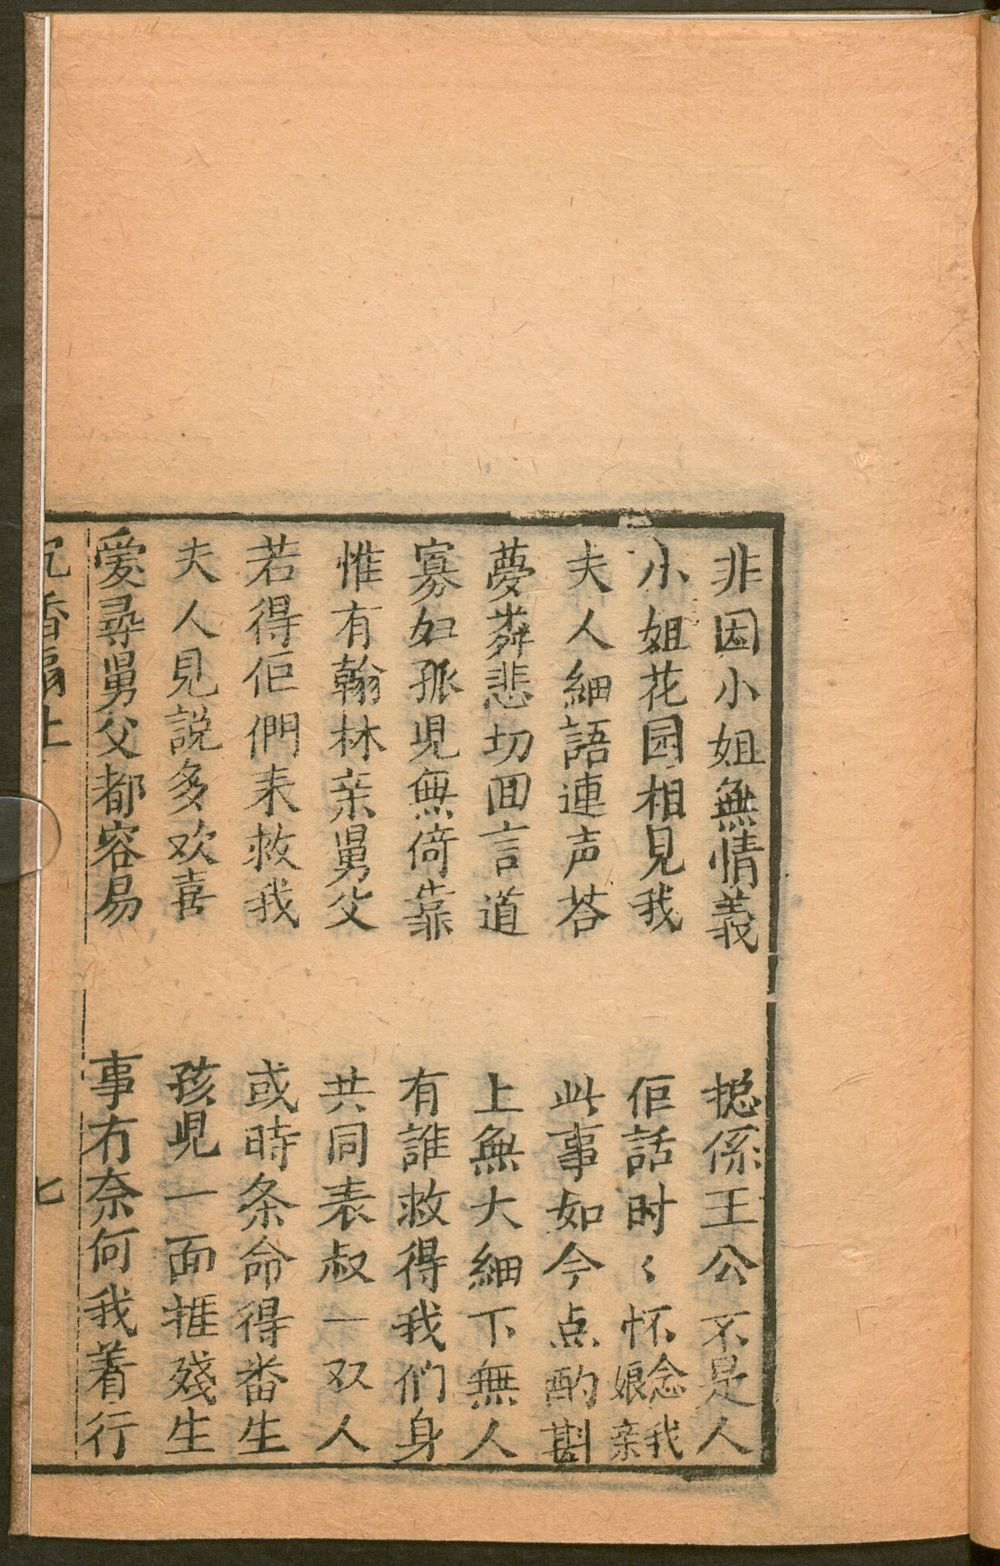 非因小姐無情義　揔係王公不是人
小姐花园相見我　佢話时〻怀念我娘亲
夫人細語連声荅　此事如今点酌斟
夢粦悲切回言道　上無大細下無人
寡妇孤児無倚靠　有誰救得我们身
惟有翰林亲舅父　共同表叔一双人
若得佢們来救我　或時条命得畨生
夫人見説多欢喜　孩児一面推殘生
爱尋舅父都容易　事冇奈何我着行
沉香扇上　七